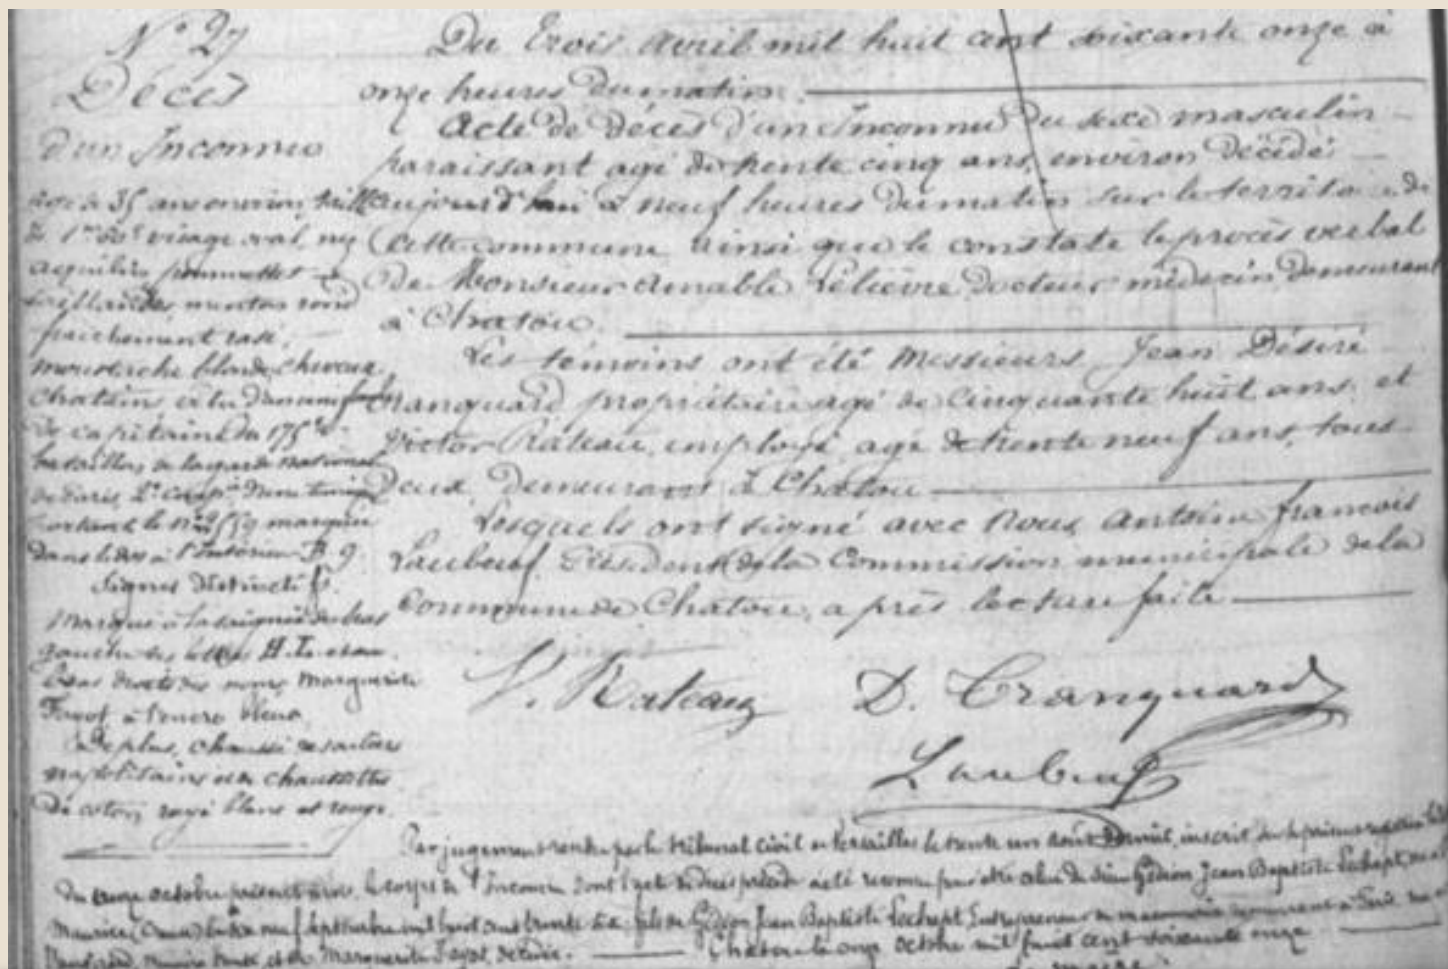 N° 27
Décès
d'un Inconnu
âgé de 35 ans environ, taille
de 1m visage oval, nez
aquilin, pommettes
saillantes, menton rond
fraichement rasé,
moustache blonde, cheveux
chatains vêtu d'un uniforme
de capitaine du 175e
bataillon de la garde nationale
de Paris, 2e Compie d'une tunique
portant le n° 559 marquée
dans le dos à l'Intérieur B. 9.
Signes distinctifs.
Marqué à la saignée du bras
gauche des lettres et au
bras droit des noms Marguerite
Fayot à l'encre bleue,
De plus, chaussé de souliers
napolitains et de chaussettes
de coton rayé blanc et rouge.
Du Trois Avril mil huit cent soixante onze à
onze heures du matin.
Acte de décès d'un Inconnu du sexe masculin
paraissant agé de trente cinq ans, environ décédé
aujourd'hui à neuf heures du matin sur le territoire de
cette commune ainsi que le constate le procès verbal
de Monsieur Amable Lelièvre, docteur médecin, demeurant
à Chatou.
Les témoins ont été Messieurs Jean Désiré
Cranquard propriétaire agé de cinquante huit ans, et
Victor Rateau, employé, agé de trente neuf ans, tous
deux demeurant à Chatou
Lesquels ont signé avec Nous, Antoine François
Laubeuf, Président de la Commission municipale de la
Commune de Chatou, après lecture faite
V. Rateau D. Cranquard
Laubeuf
Par jugement rendu par le tribunal civil de Versailles le trente un août dernier, inscrit sur le présent registre
du onze octobre présent mois, le corps de l'Inconnu dont l'acte de décès précède a été reconnu pour être celui du sieur Gédéon Jean Baptiste Lechept, né à
Maurice le dix neuf septembre mil huit cent trente six, fils de Gédéon Jean Baptiste Lechept, Entrepreneur de maçonnerie demeurant à
et de Marguerite Fayot, décédée. Chatou le onze octobre mil huit cent soixante onze
Le maire: